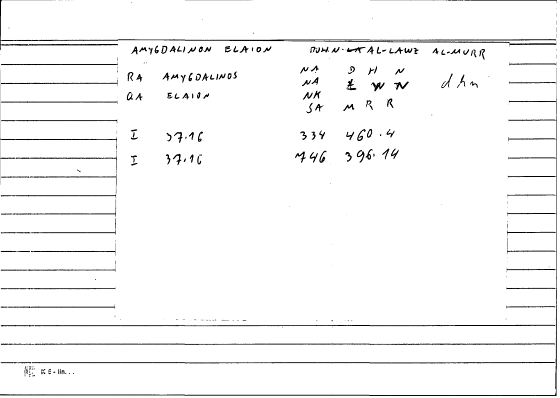 AMYGDALINON ELAION DUHN AL-LAWZ AL-MURR
RA AMYGDALINOS NA D H N dhn
QA ELAION NA Ł W N
NK
SA M R R
I 37.16 334 460.4
I 37.16 746 396.14